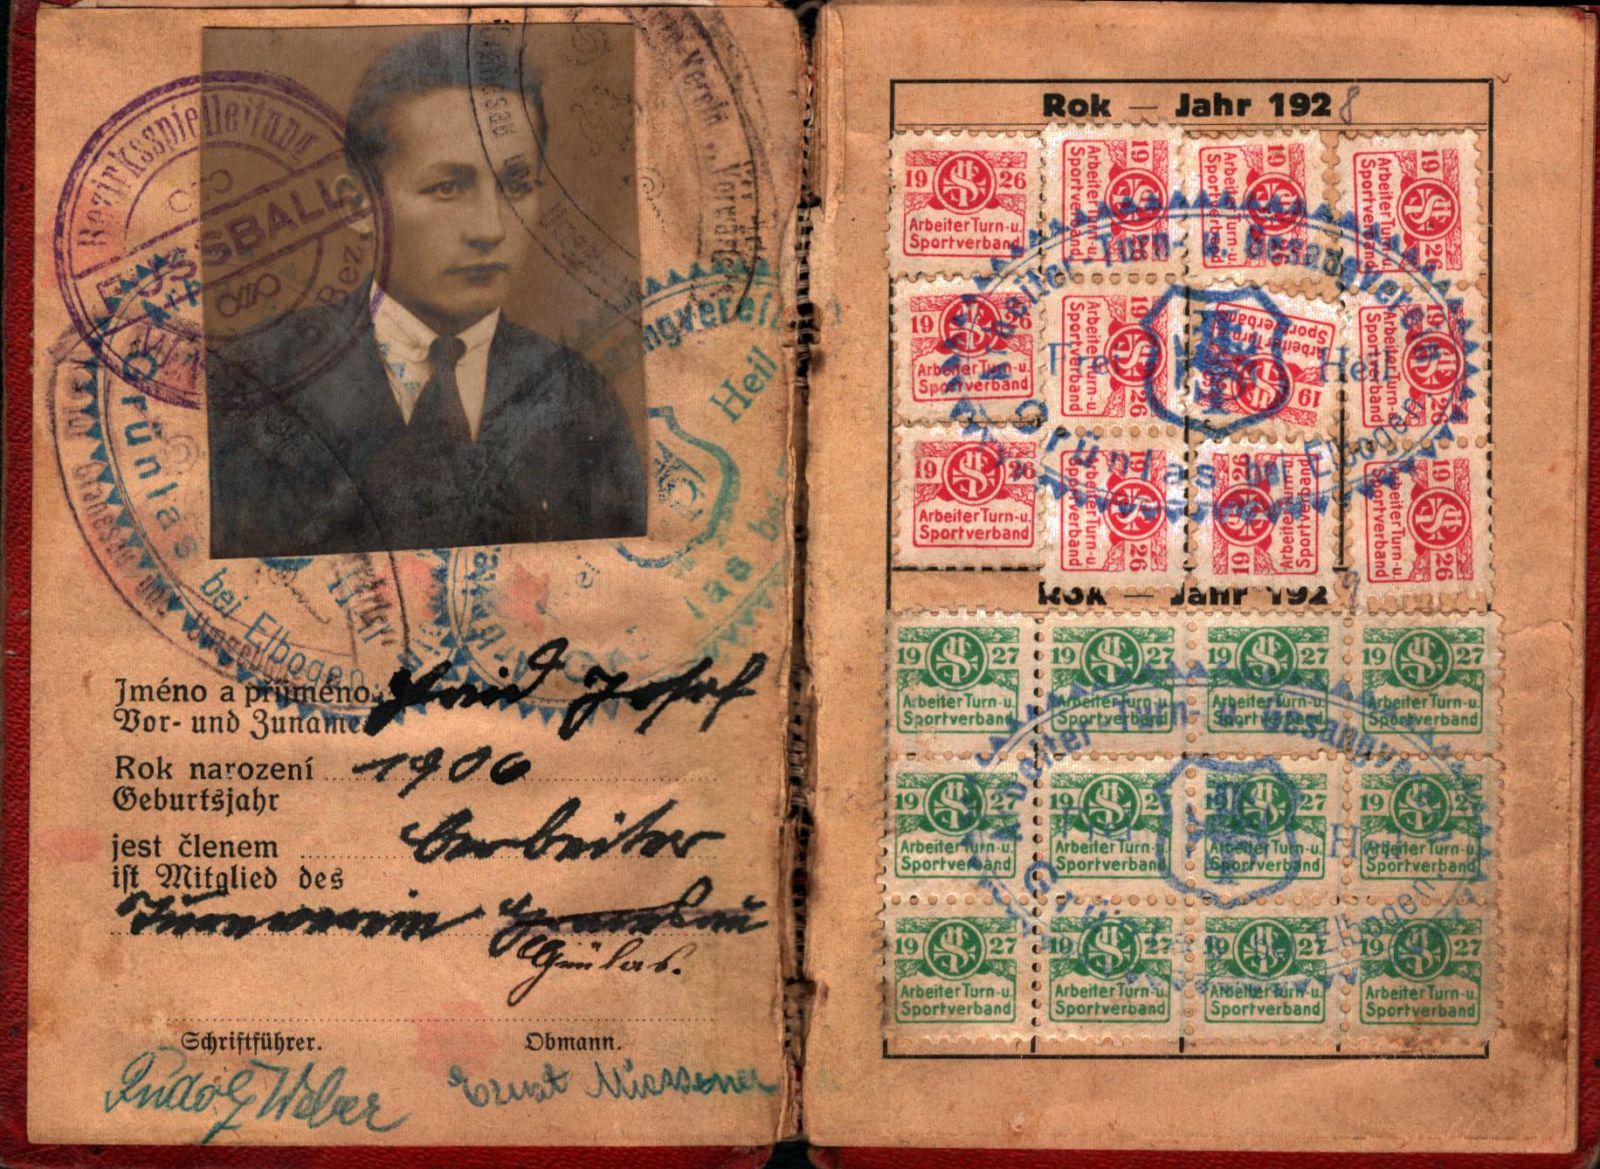 Bezirksspielleitung
FUSSBALL
Bez.
Grünlas bei Elbogen
Heil
Jméno a příjmení Josef
Vor- und Zuname
Rok narození 1906
Geburtsjahr
jest členem Arbeiter
ist Mitglied des
Turnverein
Grünlas.
Schriftführer. Obmann.
Rudolf Weber Ernst Miessner
Rok — Jahr 1928
19 26
Arbeiter Turn- u.
Sportverband
19 26
Arbeiter Turn- u.
Sportverband
19 26
Arbeiter Turn- u.
Sportverband
19 26
Arbeiter Turn- u.
Sportverband
19 26
Arbeiter Turn- u.
Sportverband
19 26
Arbeiter Turn- u.
Sportverband
19
Arbeiter Turn- u.
Sportverband
19 26
Arbeiter Turn- u.
Sportverband
19 26
Arbeiter Turn- u.
Sportverband
19 26
Arbeiter Turn- u.
Sportverband
19 26
Arbeiter Turn- u.
Sportverband
19 26
Arbeiter Turn- u.
Sportverband
Arbeiter Turn- u. Gesangverein
Frei Heil
Grünlas bei Elbogen
Rok — Jahr 1929
19 27 19 27 19 27 19 27
Arbeiter Turn- u. Arbeiter Turn- u. Arbeiter Turn- u. Arbeiter Turn- u.
Sportverband Sportverband Sportverband Sportverband
19 27 19 27 19 27 19 27
Arbeiter Turn- u. Arbeiter Turn- u. Arbeiter Turn- u. Arbeiter Turn- u.
Sportverband Sportverband Sportverband Sportverband
19 27 19 27 19 27 19 27
Arbeiter Turn- u. Arbeiter Turn- u. Arbeiter Turn- u. Arbeiter Turn- u.
Sportverband Sportverband Sportverband Sportverband
Arbeiter Turn- u. Gesangverein
Frei Heil
Grünlas bei Elbogen